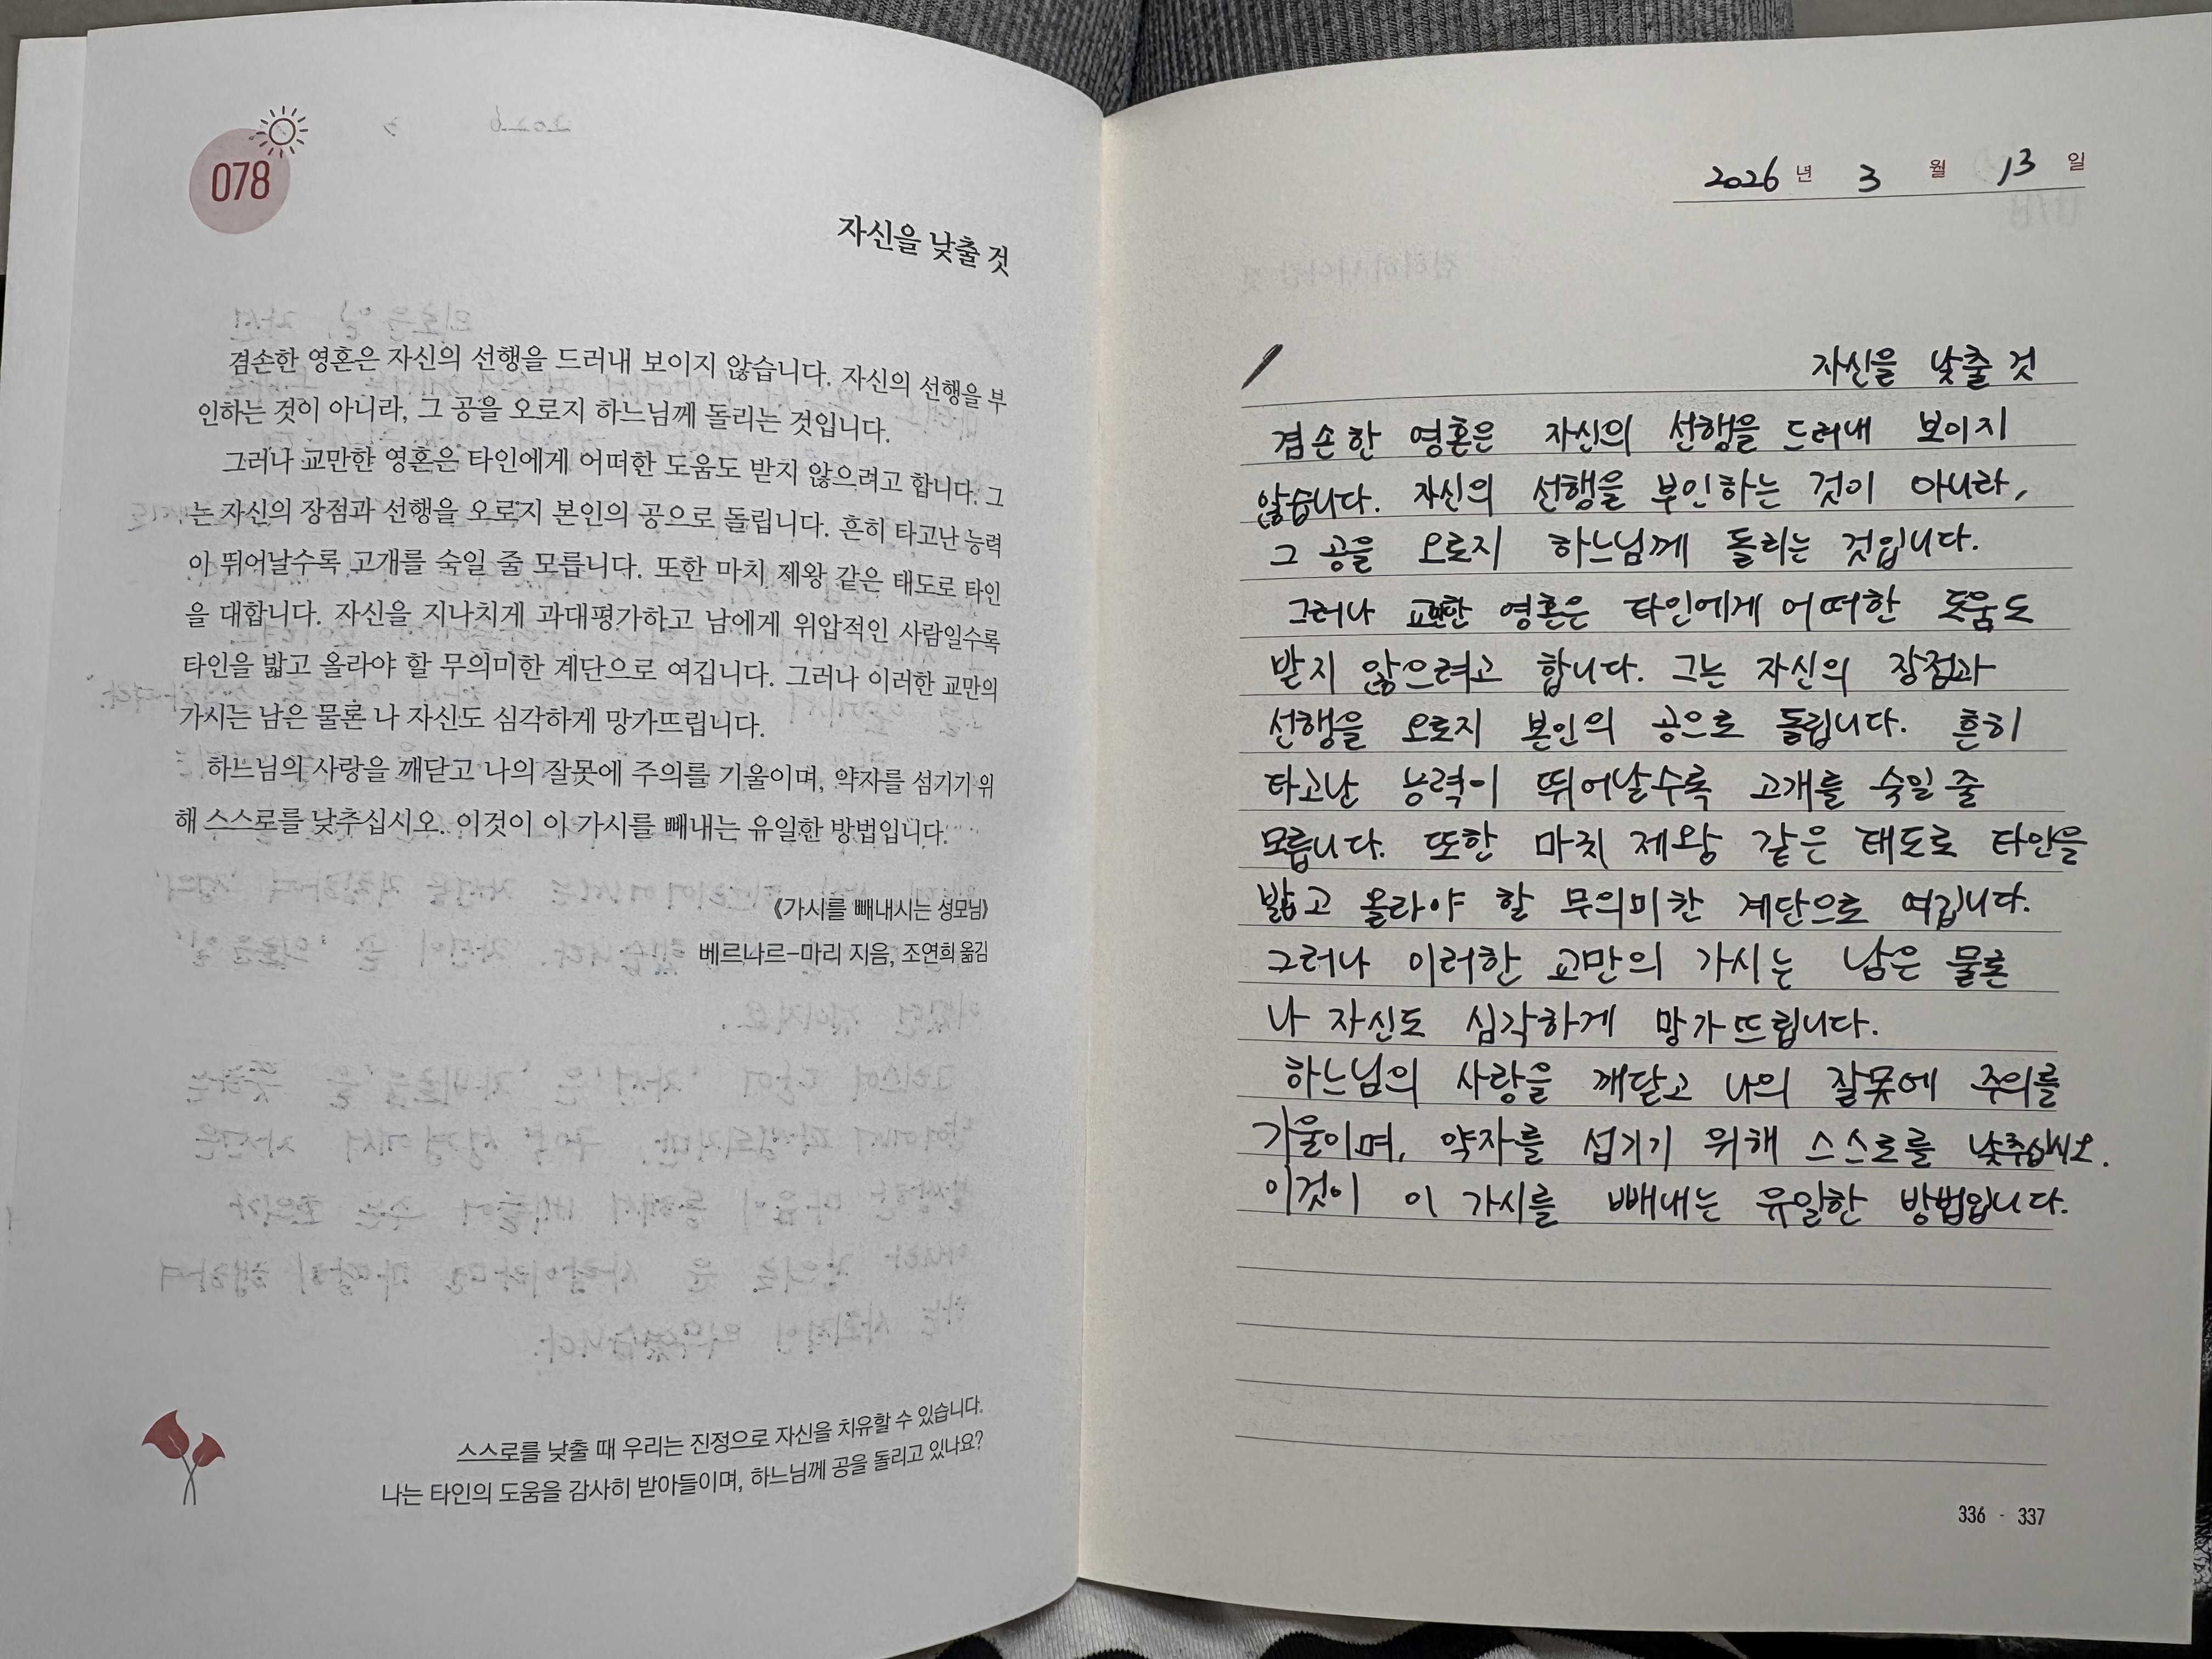 078
자신을 낮출 것
겸손한 영혼은 자신의 선행을 드러내 보이지 않습니다. 자신의 선행을 부
인하는 것이 아니라, 그 공을 오로지 하느님께 돌리는 것입니다.
그러나 교만한 영혼은 타인에게 어떠한 도움도 받지 않으려고 합니다. 그
는 자신의 장점과 선행을 오로지 본인의 공으로 돌립니다. 흔히 타고난 능력
이 뛰어날수록 고개를 숙일 줄 모릅니다. 또한 마치 제왕 같은 태도로 타인
을 대합니다. 자신을 지나치게 과대평가하고 남에게 위압적인 사람일수록
타인을 밟고 올라야 할 무의미한 계단으로 여깁니다. 그러나 이러한 교만의
가시는 남은 물론 나 자신도 심각하게 망가뜨립니다.
하느님의 사랑을 깨닫고 나의 잘못에 주의를 기울이며, 약자를 섬기기 위
해 스스로를 낮추십시오. 이것이 이 가시를 빼내는 유일한 방법입니다.
《가시를 빼내시는 성모님》
베르나르-마리 지음, 조연희 옮김
스스로를 낮출 때 우리는 진정으로 자신을 치유할 수 있습니다.
나는 타인의 도움을 감사히 받아들이며, 하느님께 공을 돌리고 있나요?
2026 년 3 월 13 일
자신을 낮출 것
겸손한 영혼은 자신의 선행을 드러내 보이지
않습니다. 자신의 선행을 부인하는 것이 아니라,
그 공을 오로지 하느님께 돌리는 것입니다.
그러나 교만한 영혼은 타인에게 어떠한 도움도
받지 않으려고 합니다. 그는 자신의 장점과
선행을 오로지 본인의 공으로 돌립니다. 흔히
타고난 능력이 뛰어날수록 고개를 숙일 줄
모릅니다. 또한 마치 제왕 같은 태도로 타인을
밟고 올라야 할 무의미한 계단으로 여깁니다.
그러나 이러한 교만의 가시는 남은 물론
나 자신도 심각하게 망가뜨립니다.
하느님의 사랑을 깨닫고 나의 잘못에 주의를
기울이며, 약자를 섬기기 위해 스스로를 낮추십시오.
이것이 이 가시를 빼내는 유일한 방법입니다.
336 - 337